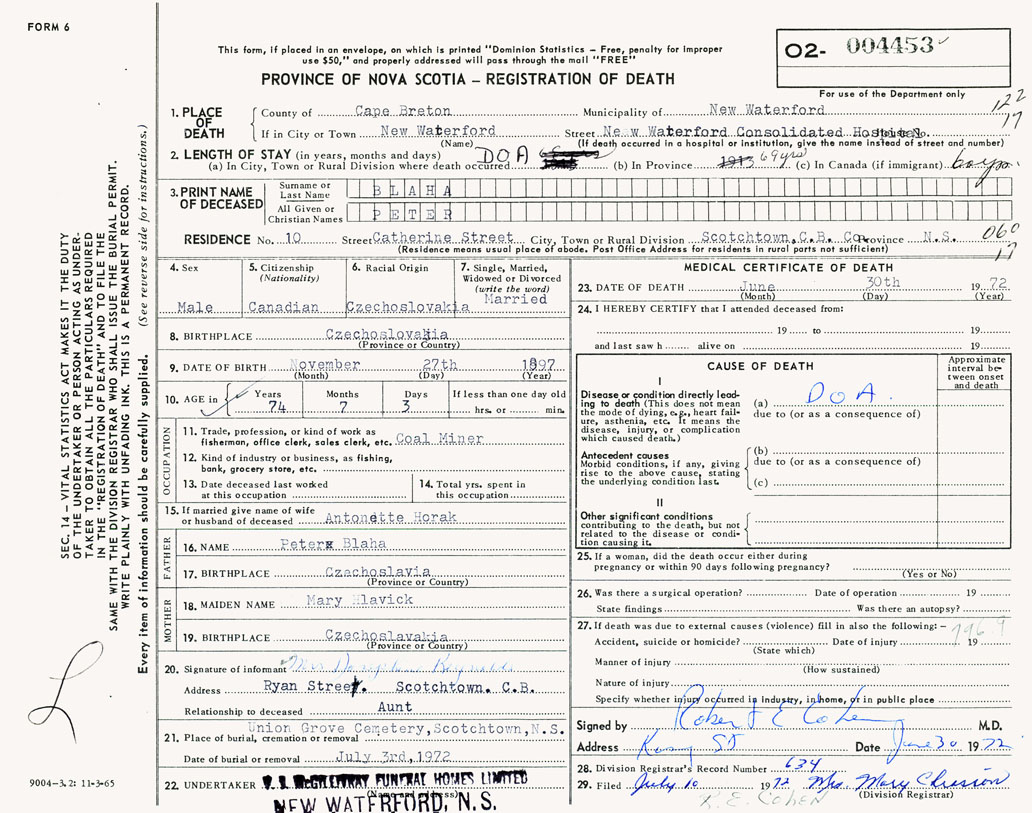 FORM 6
This form, if placed in an envelope, on which is printed "Dominion Statistics – Free, penalty for improper
use $50," and properly addressed will pass through the mail "FREE"
PROVINCE OF NOVA SCOTIA – REGISTRATION OF DEATH
02- 004453
For use of the Department only
122
17
1. PLACE OF DEATH
County of Cape Breton Municipality of New Waterford
If in City or Town New Waterford Street New Waterford Consolidated Hospital
(Name) (If death occurred in a hospital or institution, give the name instead of street and number)
2. LENGTH OF STAY (in years, months and days)
(a) In City, Town or Rural Division where death occurred DOA (b) In Province 1913 69yrs (c) In Canada (if immigrant)
3. PRINT NAME OF DECEASED
Surname or Last Name BLAHA
All Given or Christian Names PETER
RESIDENCE No. 10 Street Catherine Street City, Town or Rural Division Scotchtown, C.B. Co. Province N.S. 060
17
(Residence means usual place of abode. Post Office Address for residents in rural parts not sufficient)
4. Sex
Male
5. Citizenship
(Nationality)
Canadian
6. Racial Origin
Czechoslovakia
7. Single, Married,
Widowed or Divorced
(write the word)
Married
8. BIRTHPLACE Czechoslovakia
(Province or Country)
9. DATE OF BIRTH November 27th 1897
(Month) (Day) (Year)
10. AGE in Years Months Days If less than one day old
74 7 3 hrs. or min.
OCCUPATION
11. Trade, profession, or kind of work as
fisherman, office clerk, sales clerk, etc. Coal Miner
12. Kind of industry or business, as fishing,
bank, grocery store, etc.
13. Date deceased last worked
at this occupation
14. Total yrs. spent in
this occupation
15. If married give name of wife
or husband of deceased Antonette Horak
FATHER
16. NAME Peter Blaha
17. BIRTHPLACE Czechoslavia
(Province or Country)
MOTHER
18. MAIDEN NAME Mary Hlavick
19. BIRTHPLACE Czechoslavakia
(Province or Country)
20. Signature of informant Mrs
Address Ryan Street. Scotchtown. C.B.
Relationship to deceased Aunt
21. Place of burial, cremation or removal Union Grove Cemetery, Scotchtown, N.S.
Date of burial or removal July 3rd, 1972
22. UNDERTAKER V. J. McGILLIVRAY FUNERAL HOMES LIMITED
(Name and address)
NEW WATERFORD, N. S.
MEDICAL CERTIFICATE OF DEATH
23. DATE OF DEATH June 30th 19 72
(Month) (Day) (Year)
24. I HEREBY CERTIFY that I attended deceased from:
19 to 19
and last saw h alive on 19
CAUSE OF DEATH
Approximate
interval be-
tween onset
and death
I
Disease or condition directly lead-
ing to death (This does not mean
the mode of dying, e.g., heart fail-
ure, asthenia, etc. It means the
disease, injury, or complication
which caused death.)
(a) DOA.
due to (or as a consequence of)
Antecedent causes
Morbid conditions, if any, giving
rise to the above cause, stating
the underlying condition last.
(b)
due to (or as a consequence of)
(c)
II
Other significant conditions
contributing to the death, but not
related to the disease or condi-
tion causing it.
25. If a woman, did the death occur either during
pregnancy or within 90 days following pregnancy?
(Yes or No)
26. Was there a surgical operation? Date of operation 19
State findings Was there an autopsy?
27. If death was due to external causes (violence) fill in also the following: –
796.9
Accident, suicide or homicide? Date of injury 19
(State which)
Manner of injury
(How sustained)
Nature of injury
Specify whether injury occurred in industry, in home, or in public place
Signed by Robert E Cohen M.D.
Address King ST Date June 30 1972
28. Division Registrar's Record Number 634
29. Filed July 10 1972 Mrs. Mary
(Division Registrar)
R. E. COHEN
SEC. 14 – VITAL STATISTICS ACT MAKES IT THE DUTY
OF THE UNDERTAKER OR PERSON ACTING AS UNDER-
TAKER TO OBTAIN ALL THE PARTICULARS REQUIRED
IN THE "REGISTRATION OF DEATH" AND TO FILE THE
SAME WITH THE DIVISION REGISTRAR WHO SHALL ISSUE THE BURIAL PERMIT.
WRITE PLAINLY WITH UNFADING INK. THIS IS A PERMANENT RECORD.
Every item of information should be carefully supplied. (See reverse side for instructions.)
9004-3.2: 11-3-65